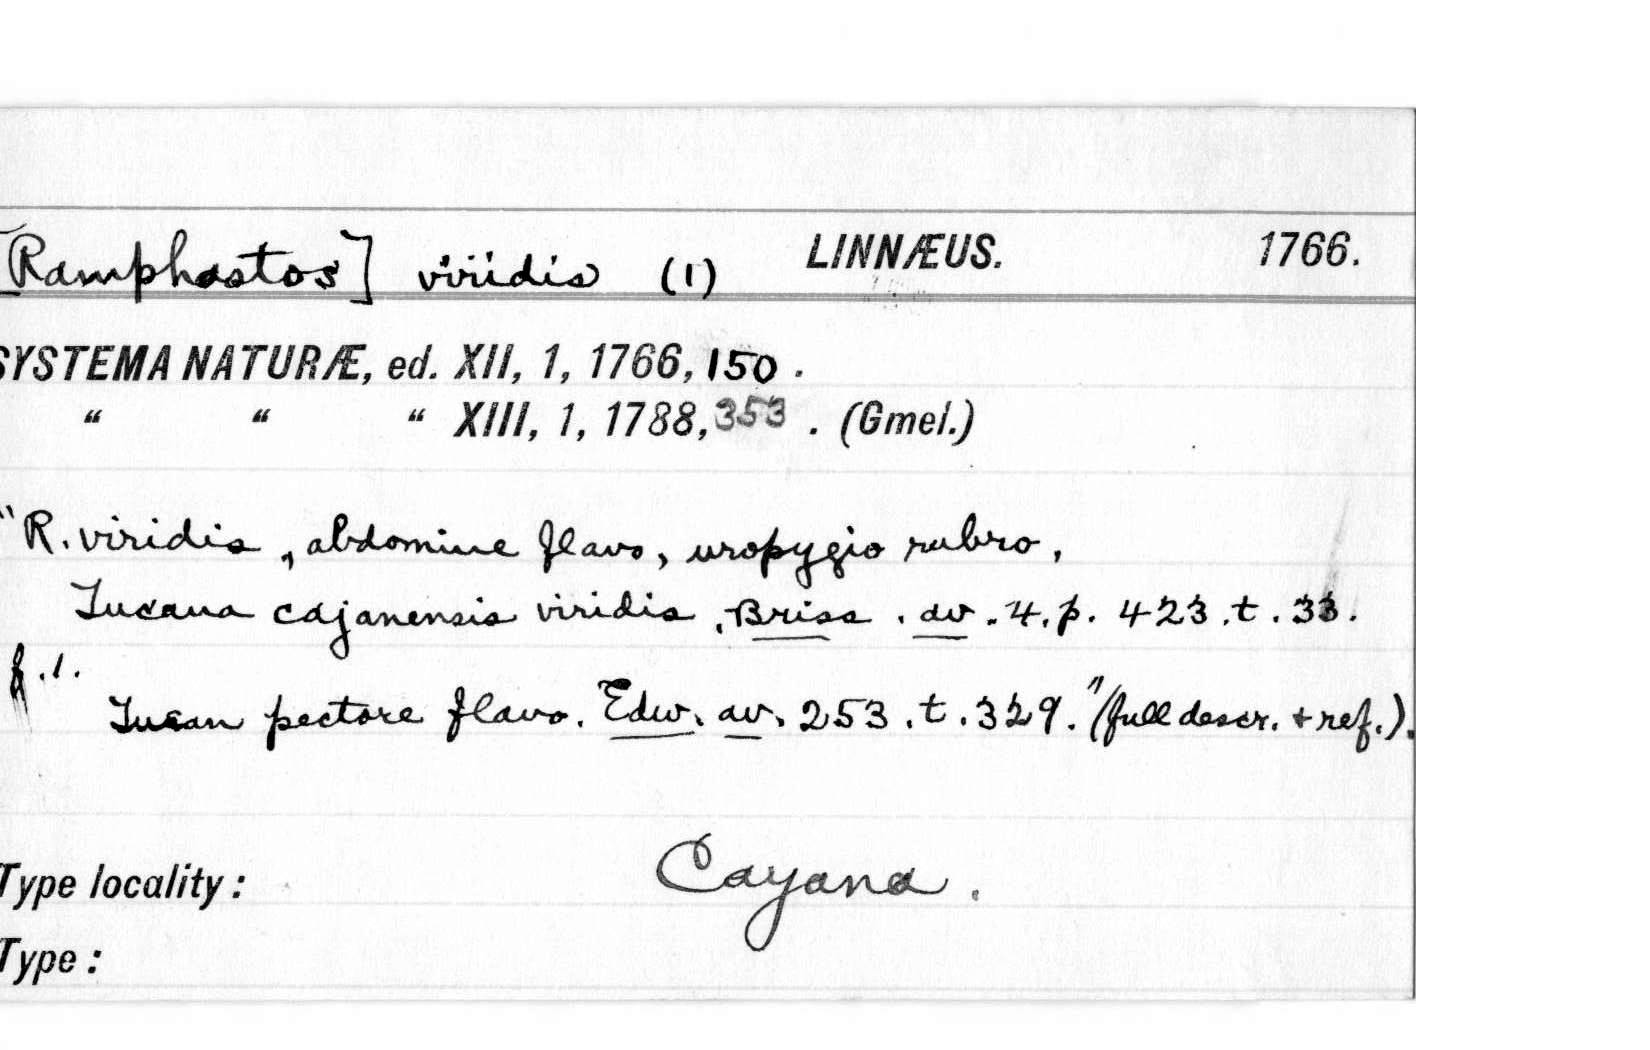 [Ramphastos] viridis (1) LINNÆUS. 1766.
SYSTEMA NATURÆ, ed. XII, 1, 1766, 150 .
“ “ “ XIII, 1, 1788, 353 . (Gmel.)
"R. viridis, abdomine flavo, uropygio rubro,
Tucana cajanensis viridis. Briss. av. 4. p. 423. t. 33.
f. 1.
Tucan pectore flavo. Edw. av. 253. t. 329." (full descr. + ref.).
Type locality: Cayana.
Type: